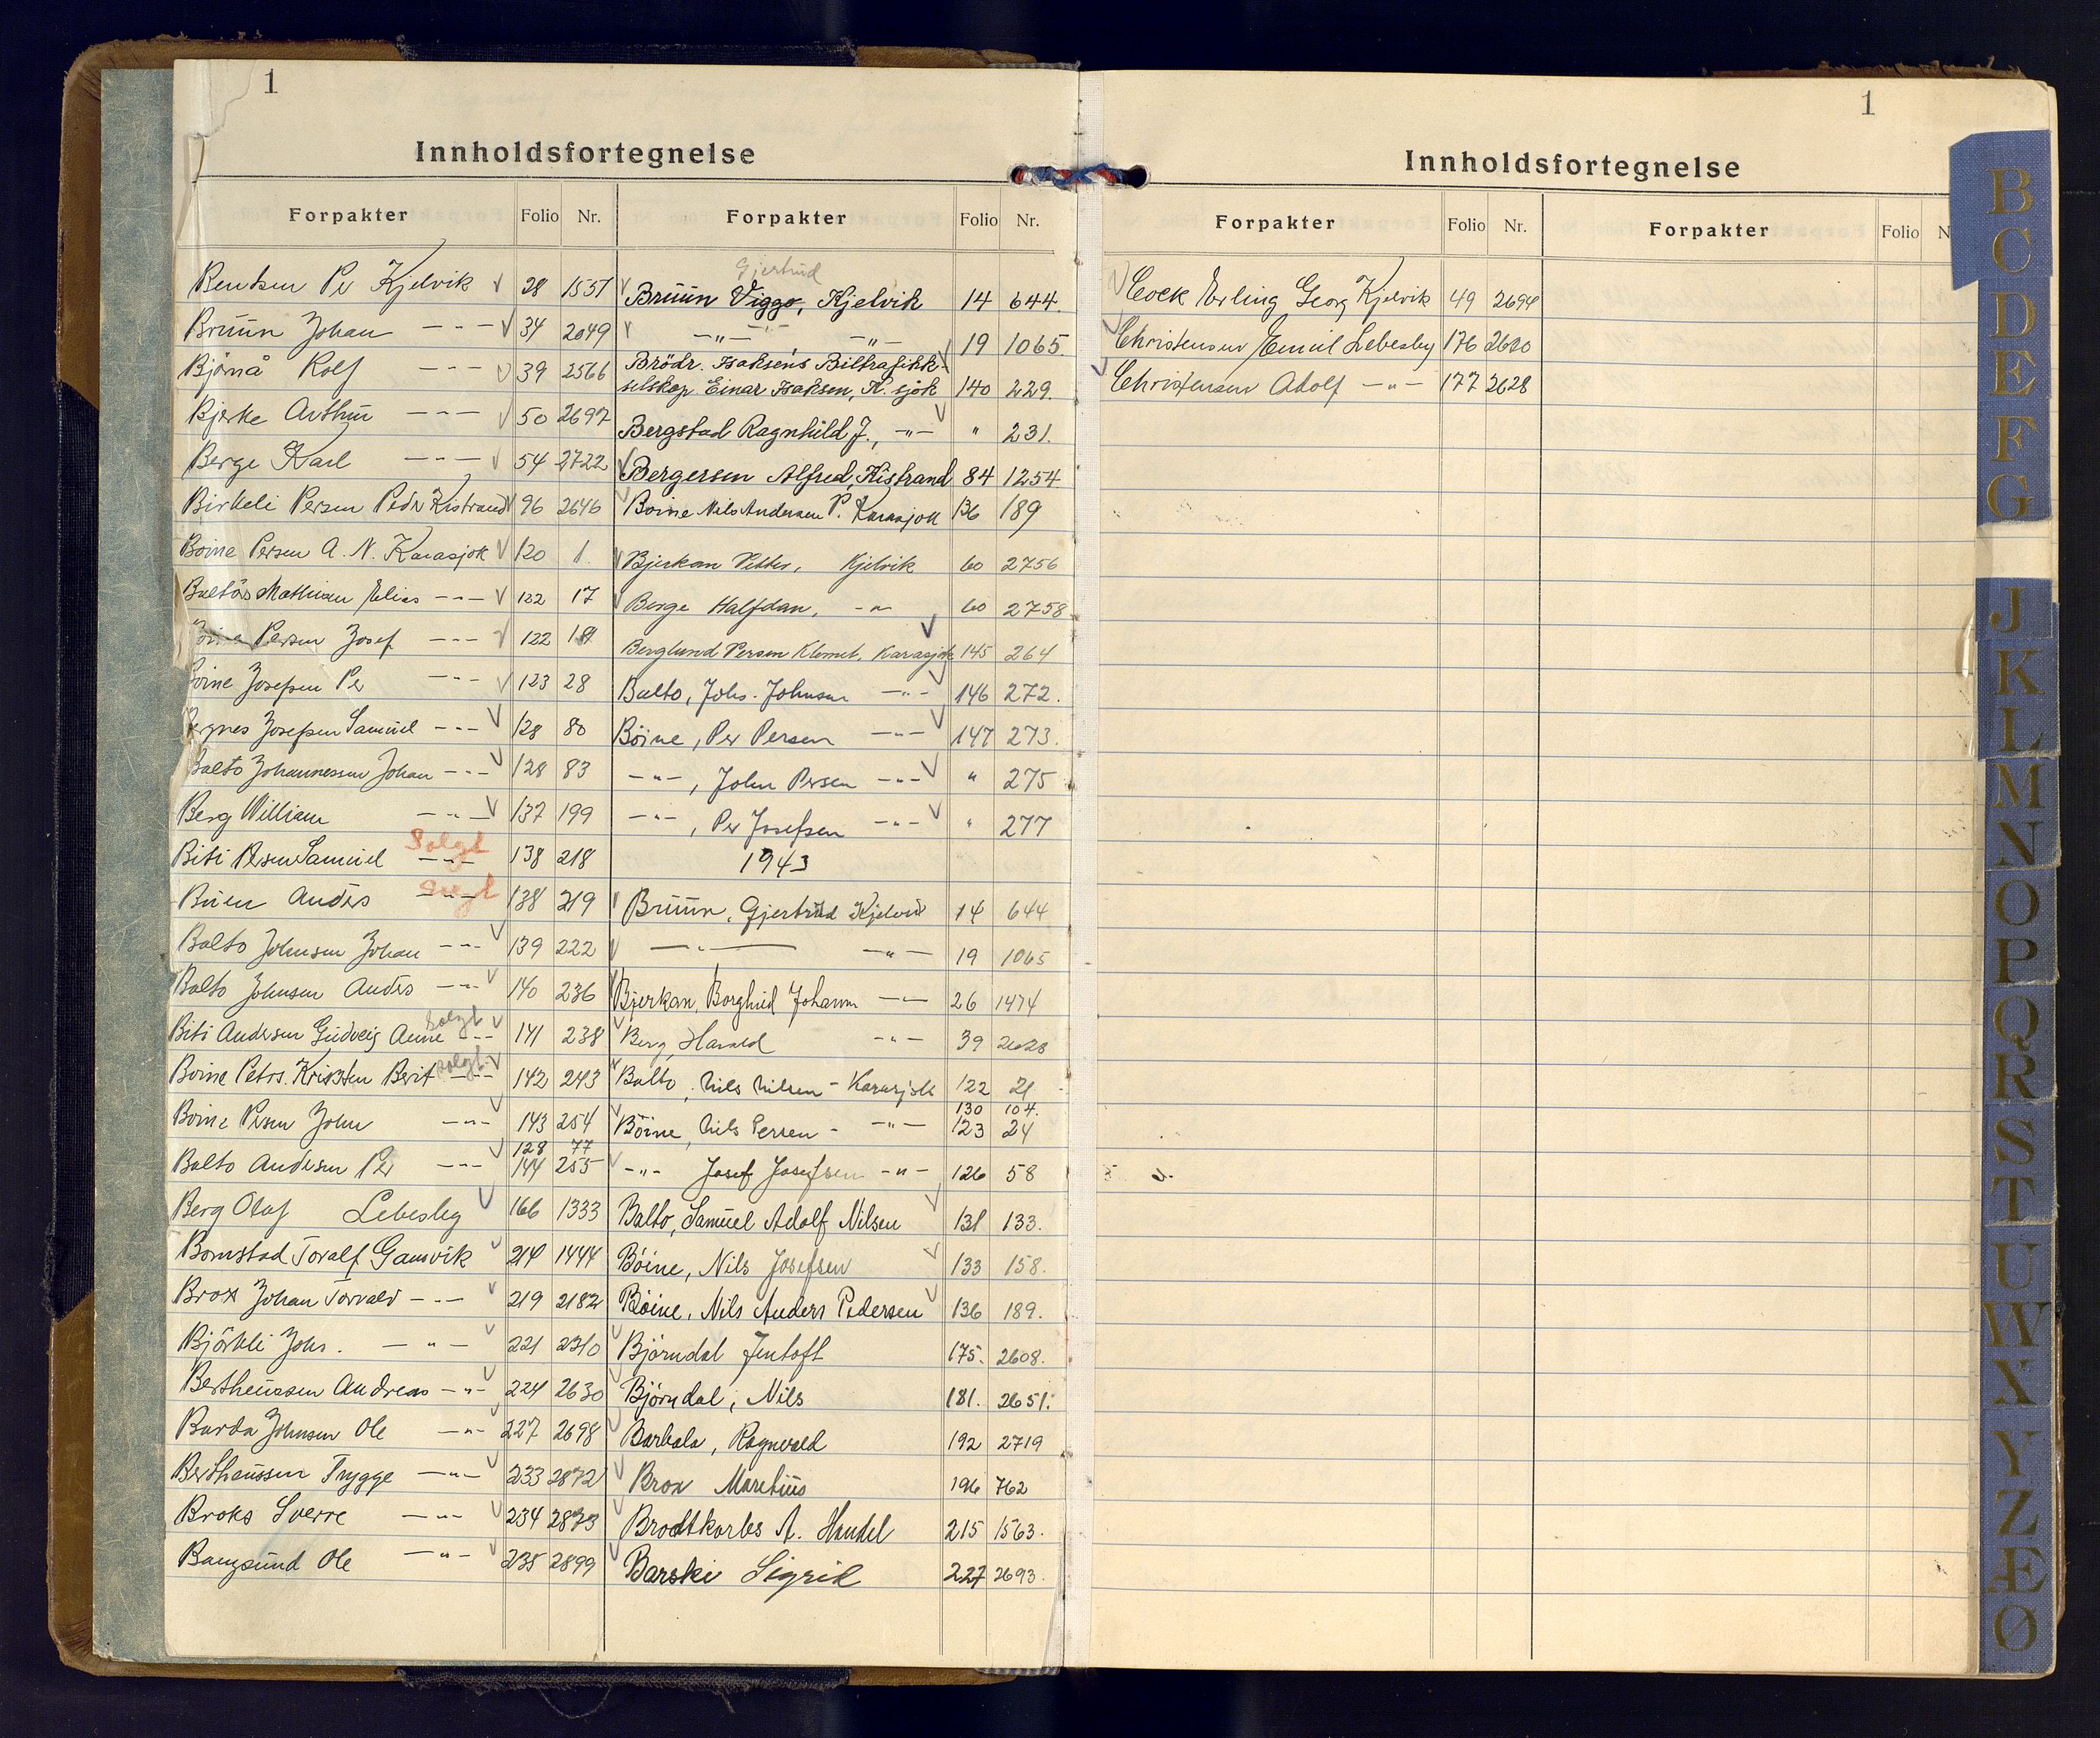 1
Innholdsfortegnelse
Forpakter Folio Nr.
Bentsen Per Kjelvik 28 1551
Bruun Johan -"- 34 2049
Bjørnå Rolf -"- 39 2566
Bjerke Arthur -"- 50 2697
Berge Karl -"- 54 2722
Birkeli Persen Peder Kistrand 96 2646
Boine Persen A. N. Karasjok 120 1.
Balto Mathisen Elias -"- 122 17
Persen Josef -"- 122 19
Boine Josefsen Per -"- 123 28
Josefsen Samuel -"- 128 80
Balto Johannessen Johan -"- 128 83
Berg William -"- 137 199
Biti Persen Samuel Solgt -"- 138 218
Anders solgt -"- 138 219
Balto Johnsen Johan -"- 139 222
Balto Johnsen Anders -"- 140 236
Biti Andersen Gudveig Anne solgt -"- 141 238
Boine Peters. Kristen Berit solgt -"- 142 243
Boine Persen John -"- 143 254
128 77
Balto Andersen Per -"- 144 255
Berg Olaf Lebesby 166 1333
Bomstad Toralf Gamvik 214 1444
Brox Johan Torvald -"- 219 2182
Björkli Johs. -"- 221 2310
Bertheussen Andreas -"- 224 2630
Barda Johnsen Ole -"- 227 2698
Berthaussen Trygge -"- 233 2872
Broks Sverre -"- 234 2873
Bangsund Ole -"- 235 2899
Forpakter Folio Nr.
Gjertrud
Bruun Viggo, Kjelvik 14 644.
-"- -"- 19 1065.
Brödr. Isaksens Biltrafikk-
selskap Einar Isaksen, K.sjok 140 229.
Bergstad Ragnhild J., -"- " 231.
Bergersen Alfred, Kistrand 84 1254
Boine Nils Andersen P. Karasjok 136 189
Bjerkan Petter, Kjelvik 60 2756
Berge Halfdan, -"- 60 2758
Berglund Persen Klemet. Karasjok 145 264
Balto, Johs. Johnsen -"- 146 272.
Böine, Per Persen -"- 147 273.
-"-, John Persen -"- " 275
-"-, Per Josefsen -"- " 277
1943
Bruun, Gjertrud Kjelvik 14 644
-"- -"- 19 1065
Bjerkan, Borghild Johanne -"- 26 1474
Berg, Harald -"- 39 2628
Balto, Nils Nilsen - Karasjok 122 21
130 104.
Böine, Nils Persen - -"- 123 24
-"- Josef Josefsen -"- 126 58
Balto, Samuel Adolf Nilsen 131 133.
Böine, Nils Josefsen 133 158.
Böine, Nils Anders Pedersen 136 189.
Björndal Jentoft 175. 2608.
Björndal, Nils 181. 2651.
Barbala, Ragnvald 192 2719
Brox Maretius 196 762
Brodtkorbs A. Handel 215 1563.
Barski Sigrid 227 2693.
1
Innholdsfortegnelse
Forpakter Folio Nr. Forpakter Folio N
Cock Erling Georg Kjelvik 49 2694
Christensen Emil Lebesby 176 2620
Christensen Adolf -"- 177 2628
B
C
D
E
F
G
J
K
L
M
N
O
P
Q
R
S
T
U
W
X
Y
Z
Æ
Ø